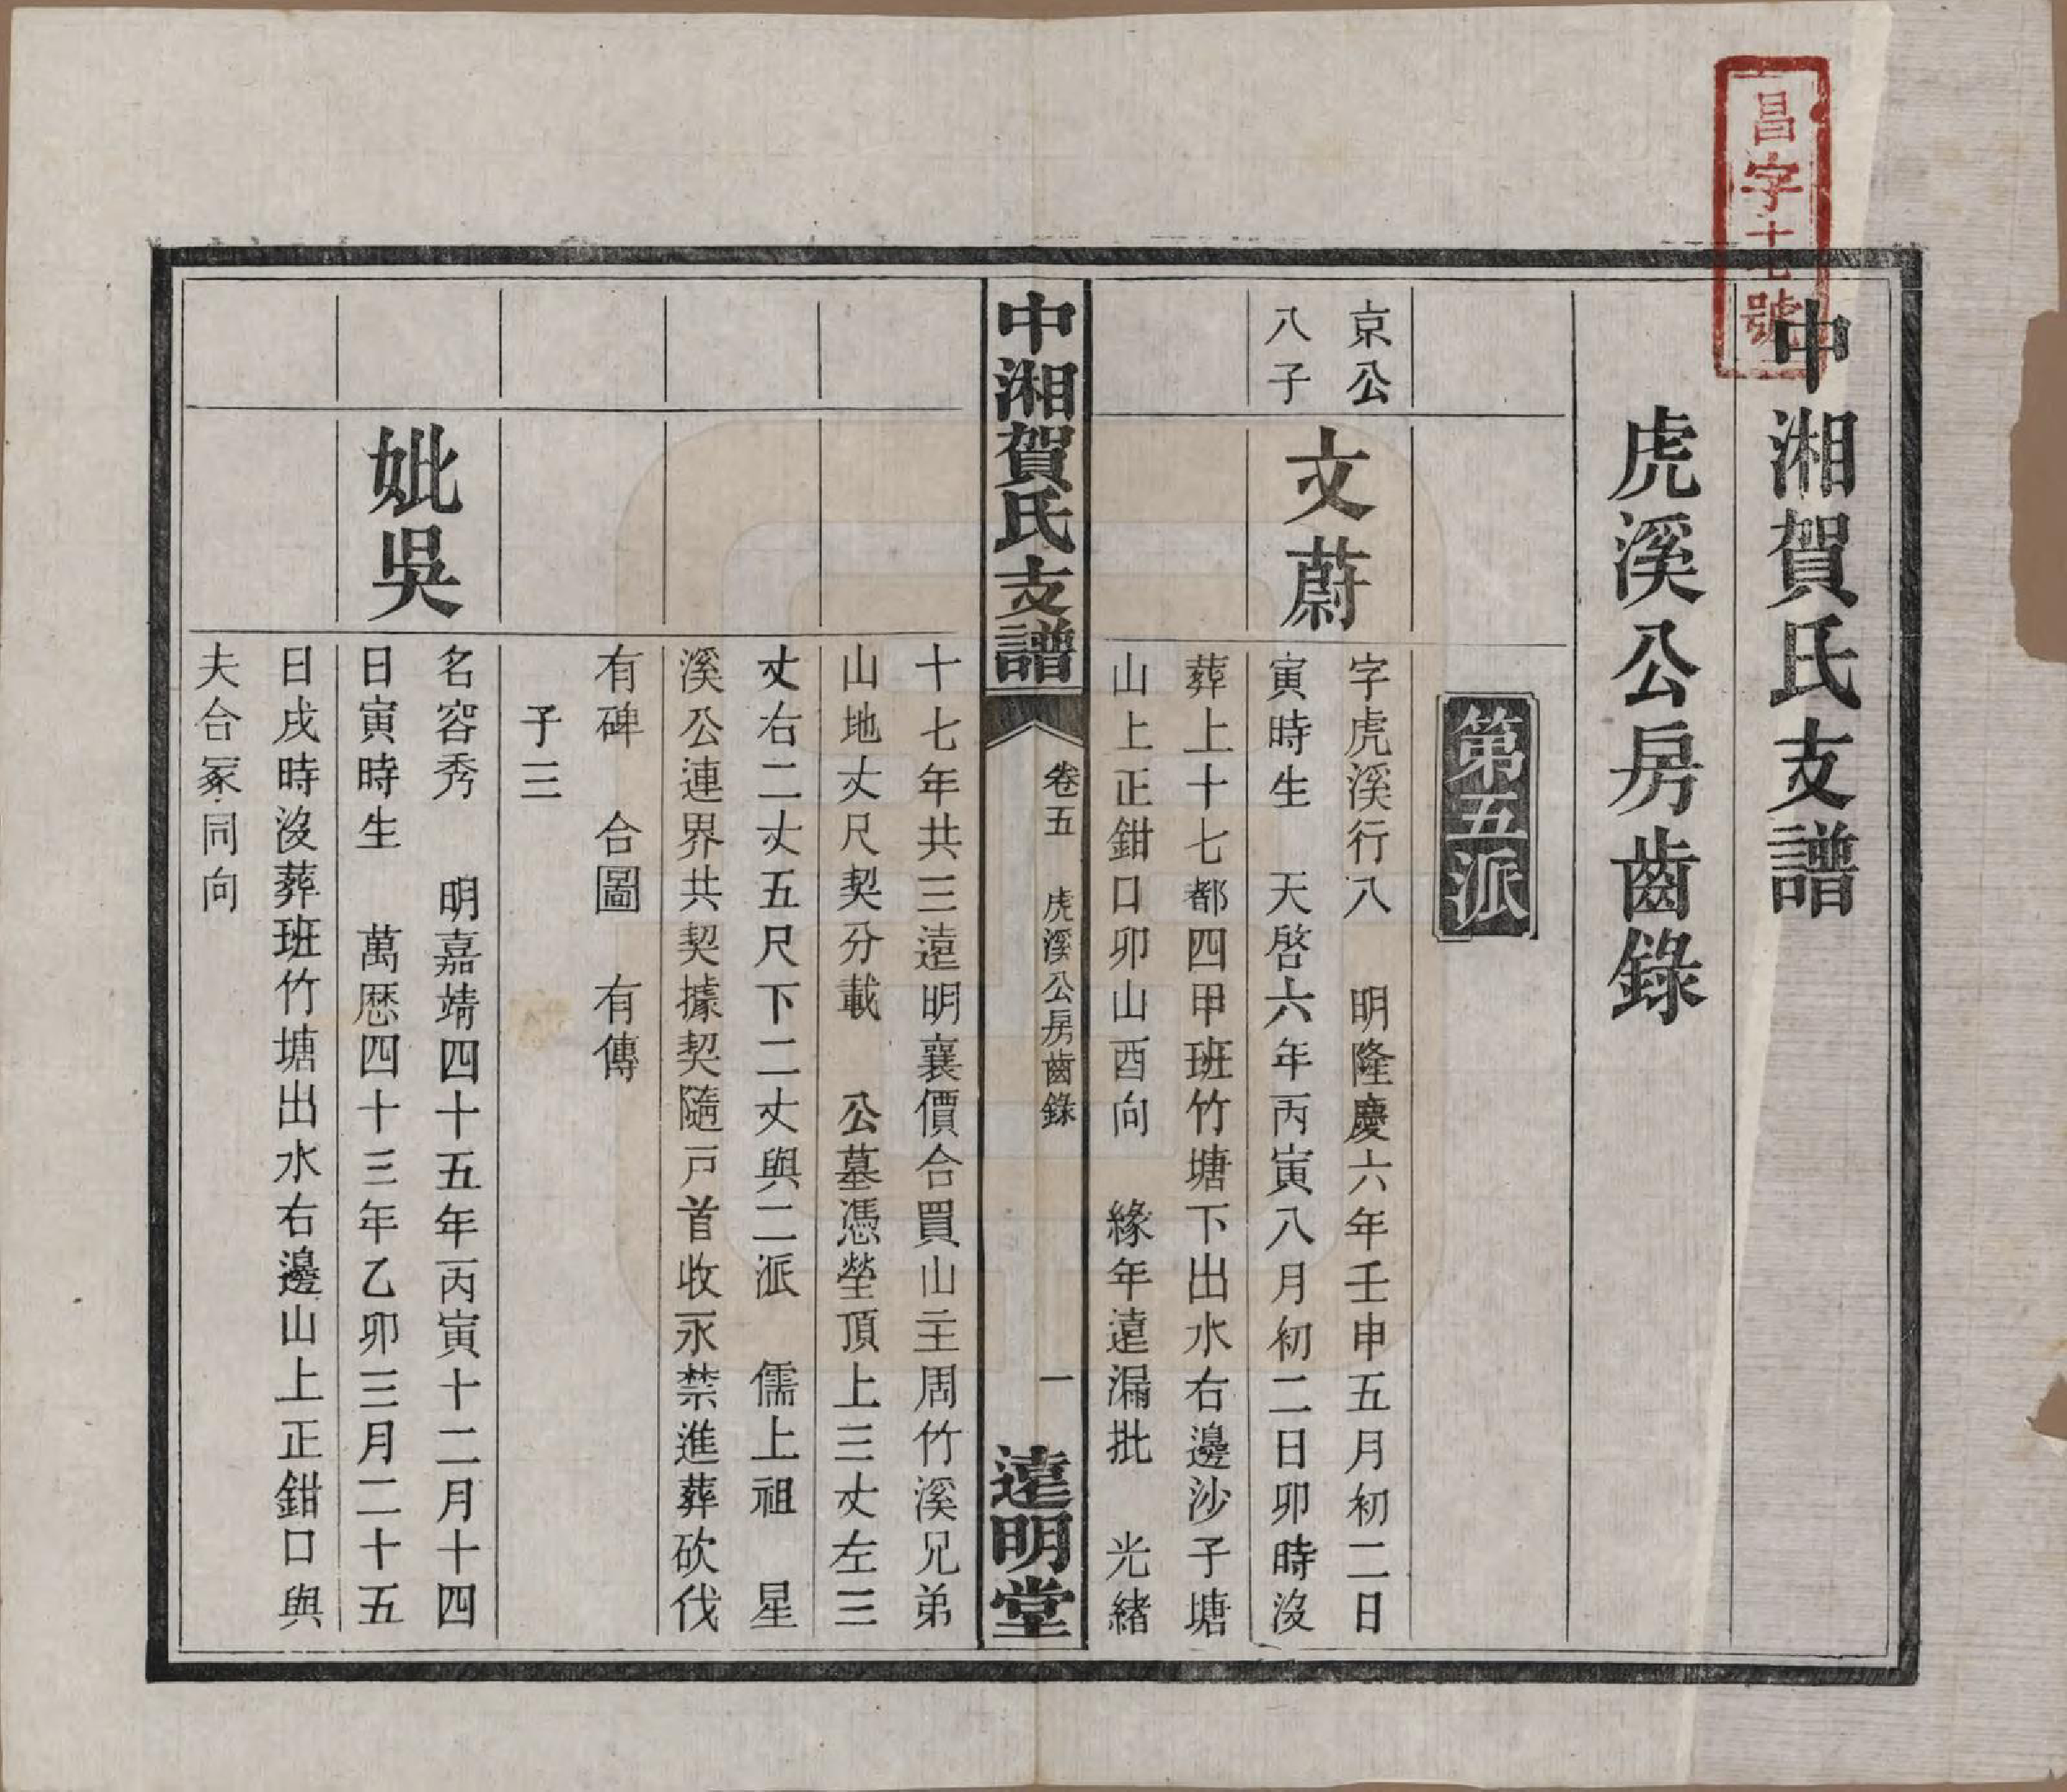 昌字十七號
中湘賀氏支譜
虎溪公房齒錄
第五派
京公
八子
文蔚
字虎溪行八　明隆慶六年壬申五月初二日
寅時生　天啓六年丙寅八月初二日卯時沒
葬上十七都四甲班竹塘下出水右邊沙子塘
山上正鉗口卯山酉向　緣年遠漏批　光緒
中湘賀氏支譜
卷五　虎溪公房齒錄
一
遠明堂
十七年共三遠明襄價合買山主周竹溪兄弟
山地丈尺契分載　公墓憑塋頂上三丈左三
丈右二丈五尺下二丈與二派　儒上祖　星
溪公連界共契據契隨戶首收永禁進葬砍伐
有碑　合圖　有傳
子三
妣吳
名容秀　明嘉靖四十五年丙寅十二月十四
日寅時生　萬曆四十三年乙卯三月二十五
日戌時沒葬班竹塘出水右邊山上正鉗口與
夫合冢同向